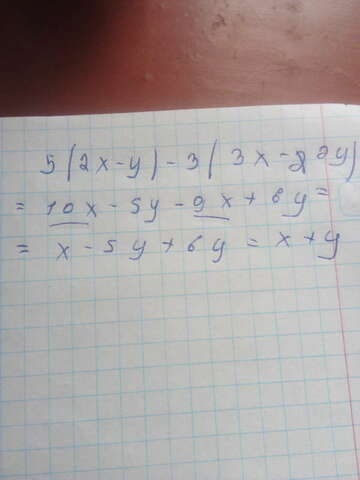 5(2x-y)-3(3x-2y)
= 10x - 5y - 9x + 6y =
= x - 5y + 6y = x + y